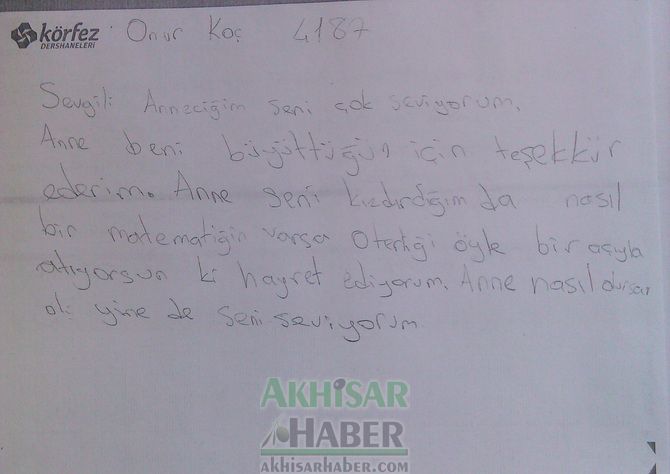 körfez Onur Koç 4187
DERSHANELERİ
Sevgili Anneciğim seni çok seviyorum.
Anne beni büyüttüğün için teşekkür
ederim. Anne seni kızdırdığımda nasıl
bir matematiğin varsa o terliği öyle bir açıyla
atıyorsun ki hayret ediyorum. Anne nasıl olursan
ol yine de seni seviyorum
AKHİSAR
HABER
akhisarhaber.com